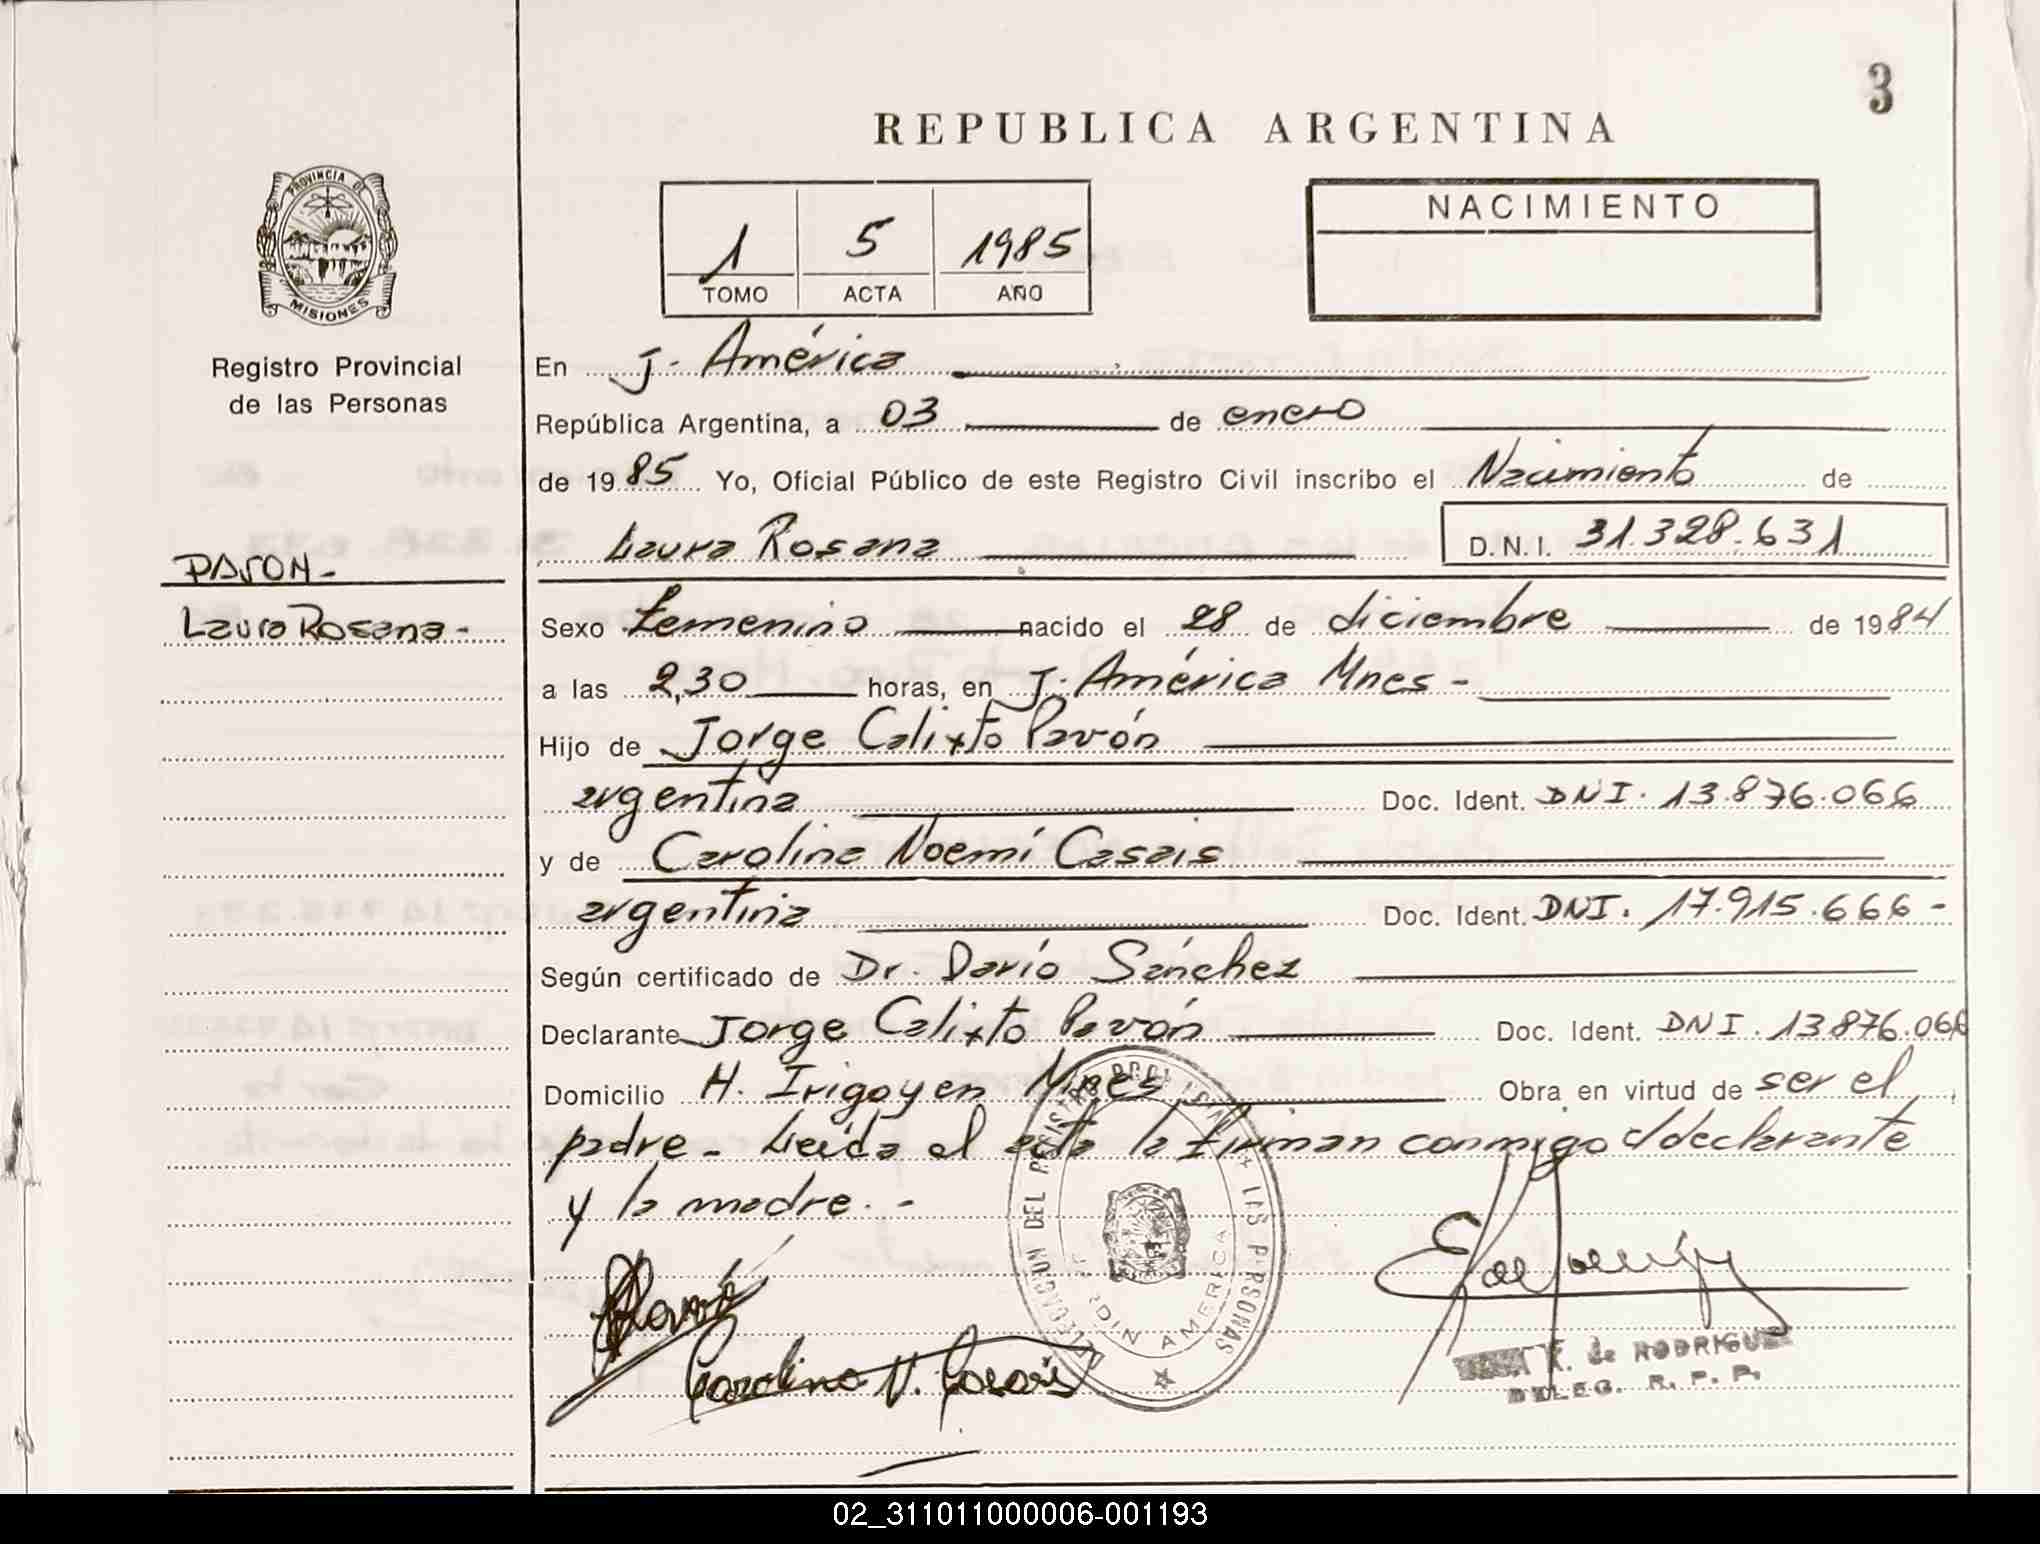 3
REPUBLICA ARGENTINA
PROVINCIA DE
MISIONES
Registro Provincial
de las Personas
1 5 1985
TOMO ACTA AÑO
NACIMIENTO
En J. América
República Argentina, a 03 de enero
de 1985 Yo, Oficial Público de este Registro Civil inscribo el Nacimiento de
Laura Rosana D.N.I. 31.328.631
PAVON-
Laura Rosana-
Sexo Femenino nacido el 28 de diciembre de 1984
a las 2,30 horas, en J. América Mnes-
Hijo de Jorge Calixto Pavón
argentina Doc. Ident. DNI. 13.876.066
y de Carolina Noemí Casais
argentina Doc. Ident. DNI. 17.915.666-
Según certificado de Dr. Darío Sánchez
Declarante Jorge Calixto Pavón Doc. Ident. DNI. 13.876.066
Domicilio H. Irigoyen Mnes Obra en virtud de ser el
padre- Leída el acta la firman conmigo el declarante
y la madre.-
DELEGACION DEL REGISTRO PROVINCIAL DE LAS PERSONAS
JARDIN AMERICA
Carolina N. Casais
de RODRIGUEZ
DELEG. R. P. P.
02_311011000006-001193